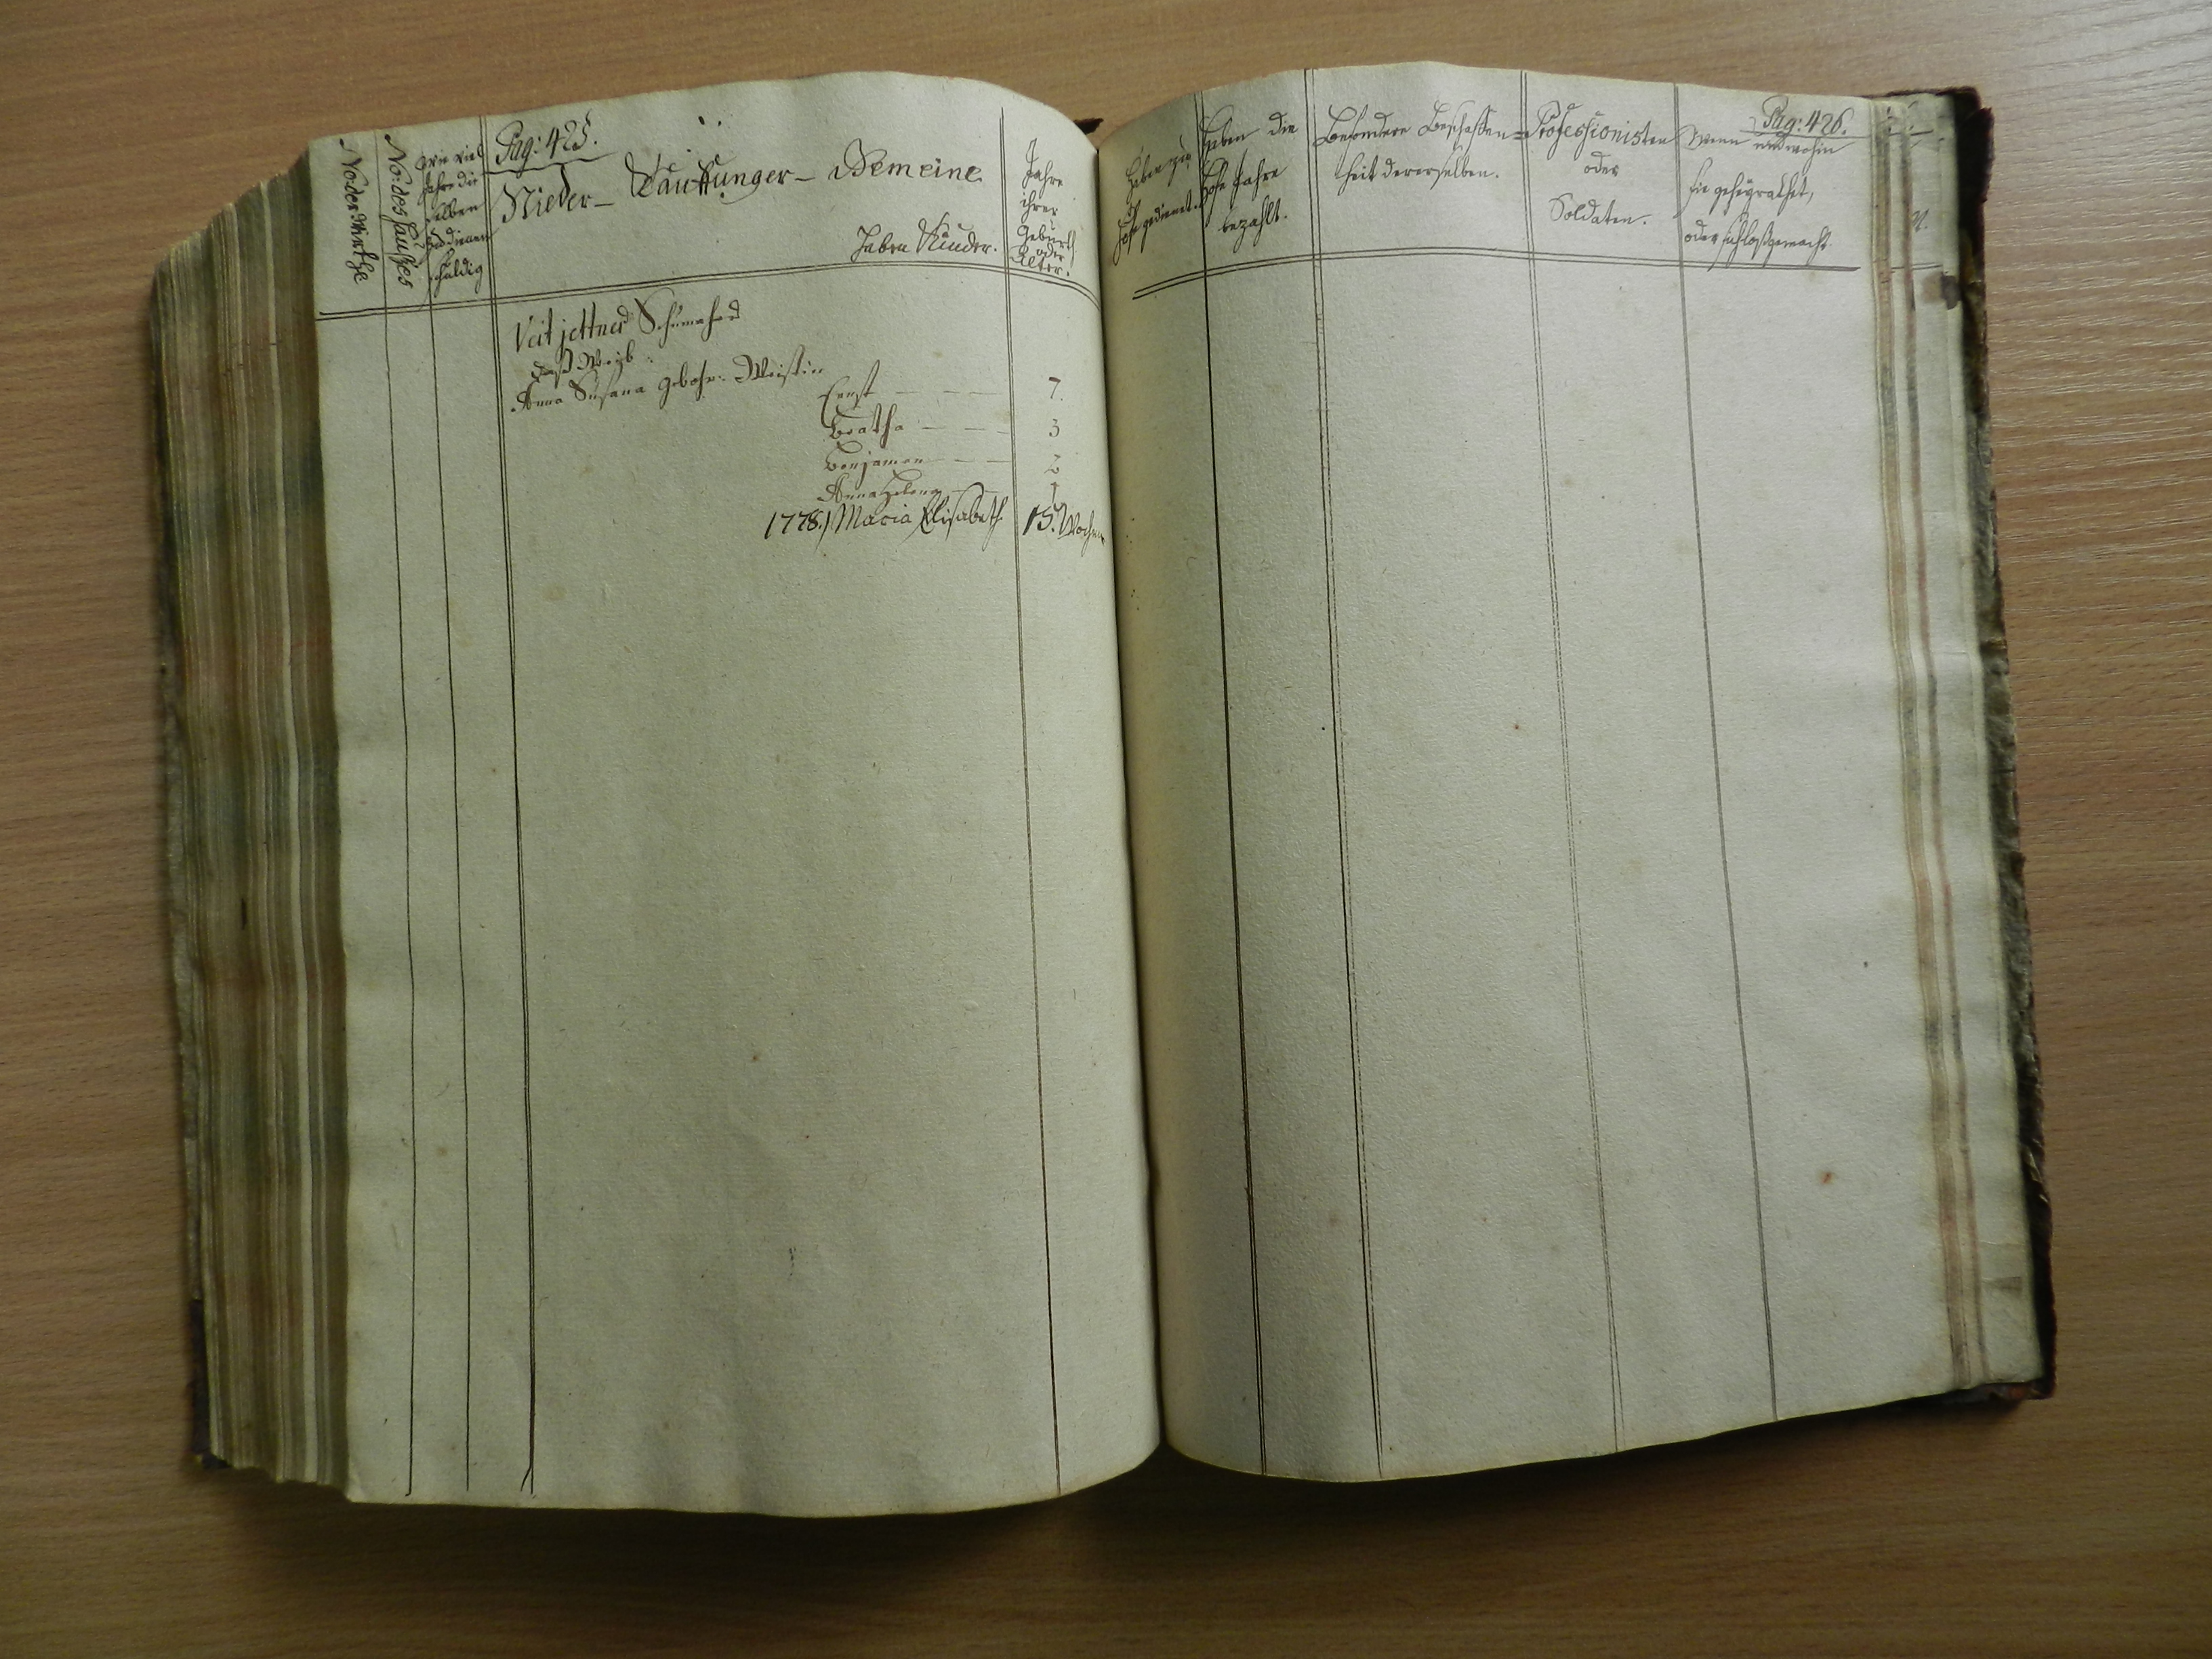 Pag: 425.
No der Wirthe
No: des Hauses
Wie viel
Jahre die
selben
zu dienen
schuldig
Nieder- Gemeine
Haben Kinder.
Jahre
ihrer
Geburth
oder
Alter.
Veit jettner Schumaher
Weib
Anna Susana gebohr:
Ernst 7.
Beatha 3
Benjamen 2
Anna Helena
1778. Maria Elisabeth 15. Wochen
Pag: 426.
Haben zu
Hofe gedienet.
Haben die
Hofe Jahre
bezahlt.
Besondere Beschaffen=
heit dererselben.
Professionisten
oder
Soldaten.
Wenn und wohin
sie geheyrathet,
oder loßgemacht.